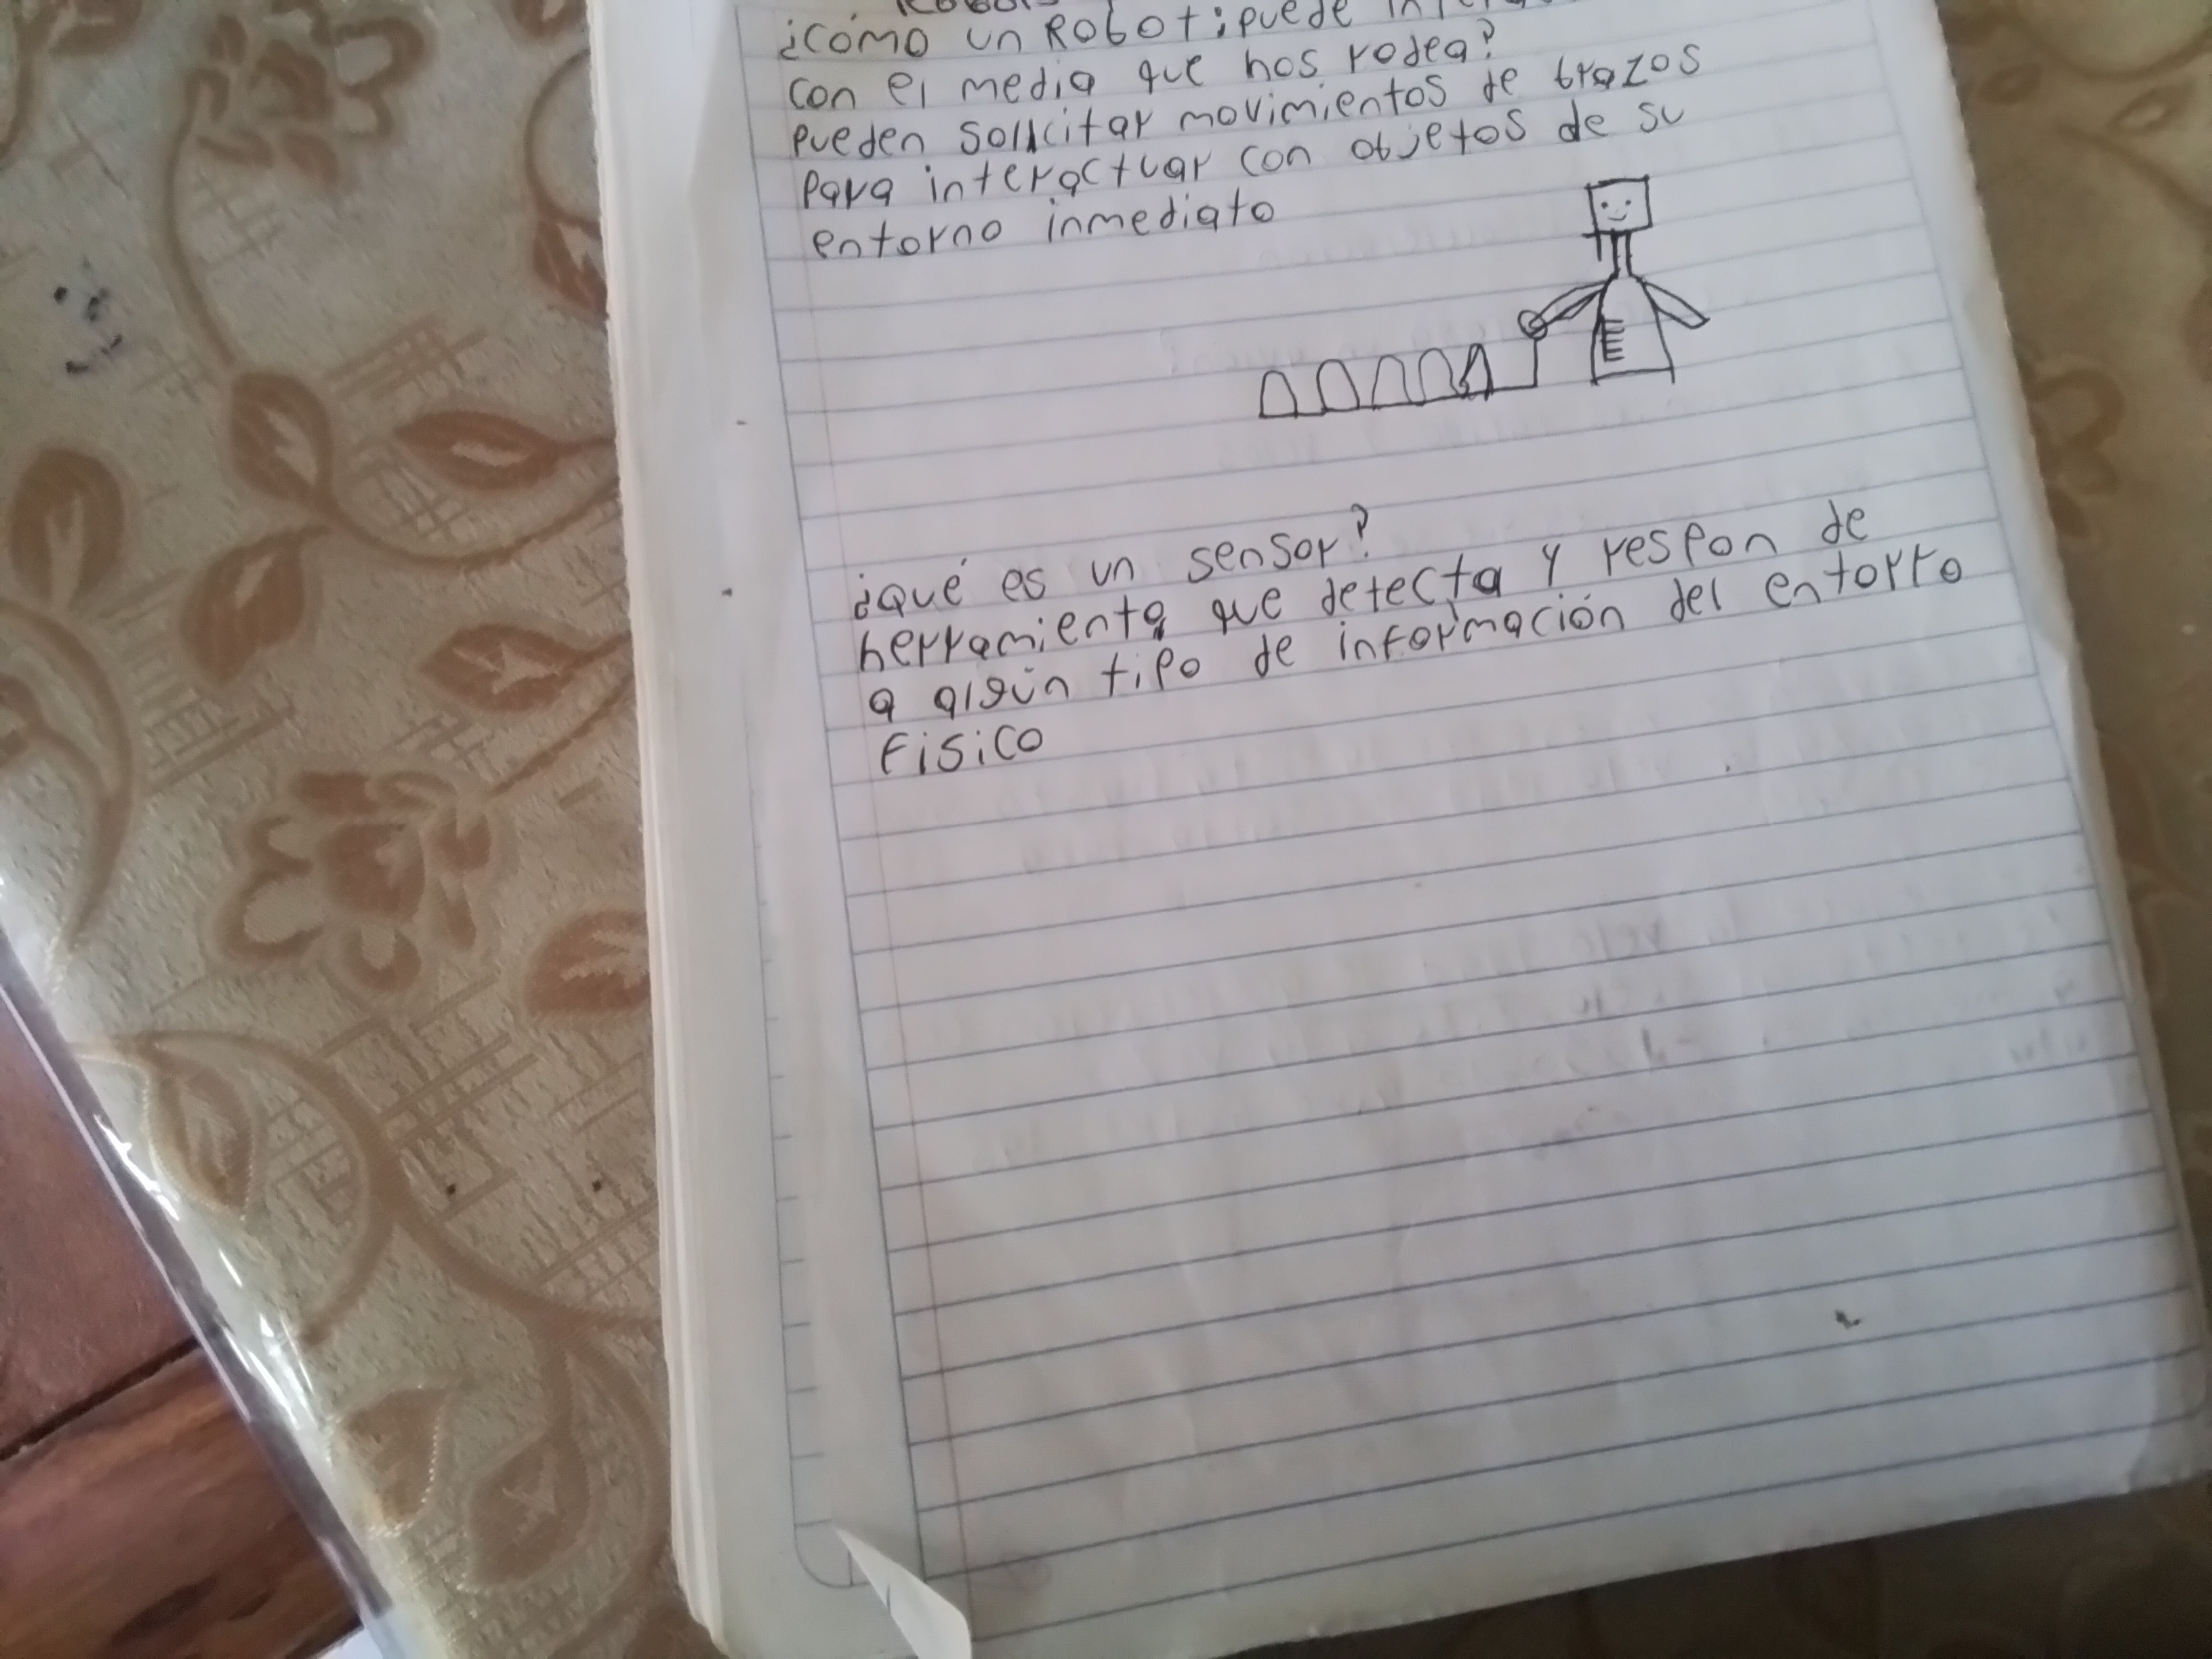 ¿Cómo un Robot; puede
con el media que nos rodea?
pueden sollcitar movimientos de brazos
para interactuar con objetos de su
entorno inmediato
¿qué es un sensor?
herramienta que detecta y respon de
a algún tipo de información del entorro
Fisico